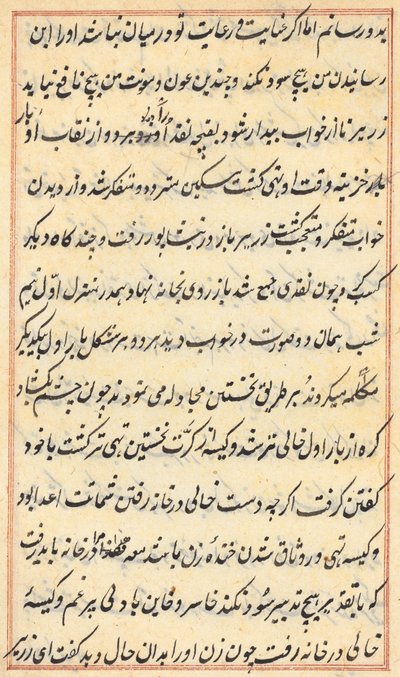 بدو رسانم اما اگر عنایت و رعایت تو در میان نباشد او را این
رسانیدن من هیچ سود نکند و چندین عون و مونت من هیچ نافع نیاید
زریر تا از خواب بیدار شود نقد او را دزد برد و از نقاب او بار
خزینه وقت او تهی گشت مسکین متردد و متفکر شد و از دیدن
خواب متفکر و متعجب گشت زریر باز در نیشابور رفت و چند گاه دیگر
کسب کرد و چون نقدی جمع شد باز روی بخانه نهاد و هم در منزل اول نیم
شب همان دو صورت در خواب دید هر دو هم شکل بار اول با یکدیگر
مکالمه میکردند و بر طریق نخستین مجادله می نمودند چون چشم بگشاد
گره از بار اول خالی تر شد و کیسه از کرت نخستین تهی تر گشت با خود
گفتن گرفت اگرچه دست خالی در خانه رفتن شماتت اعدا بود
و کیسه تهی در وثاق شدن خنده زن باشد مرا در خانه باید رفت
که با تقدیر هیچ تدبیر سود نکند خاسر و خاین با دلی پر غم و کیسه
خالی در خانه رفت چون زن او را بدان حال دید گفت ای زریر